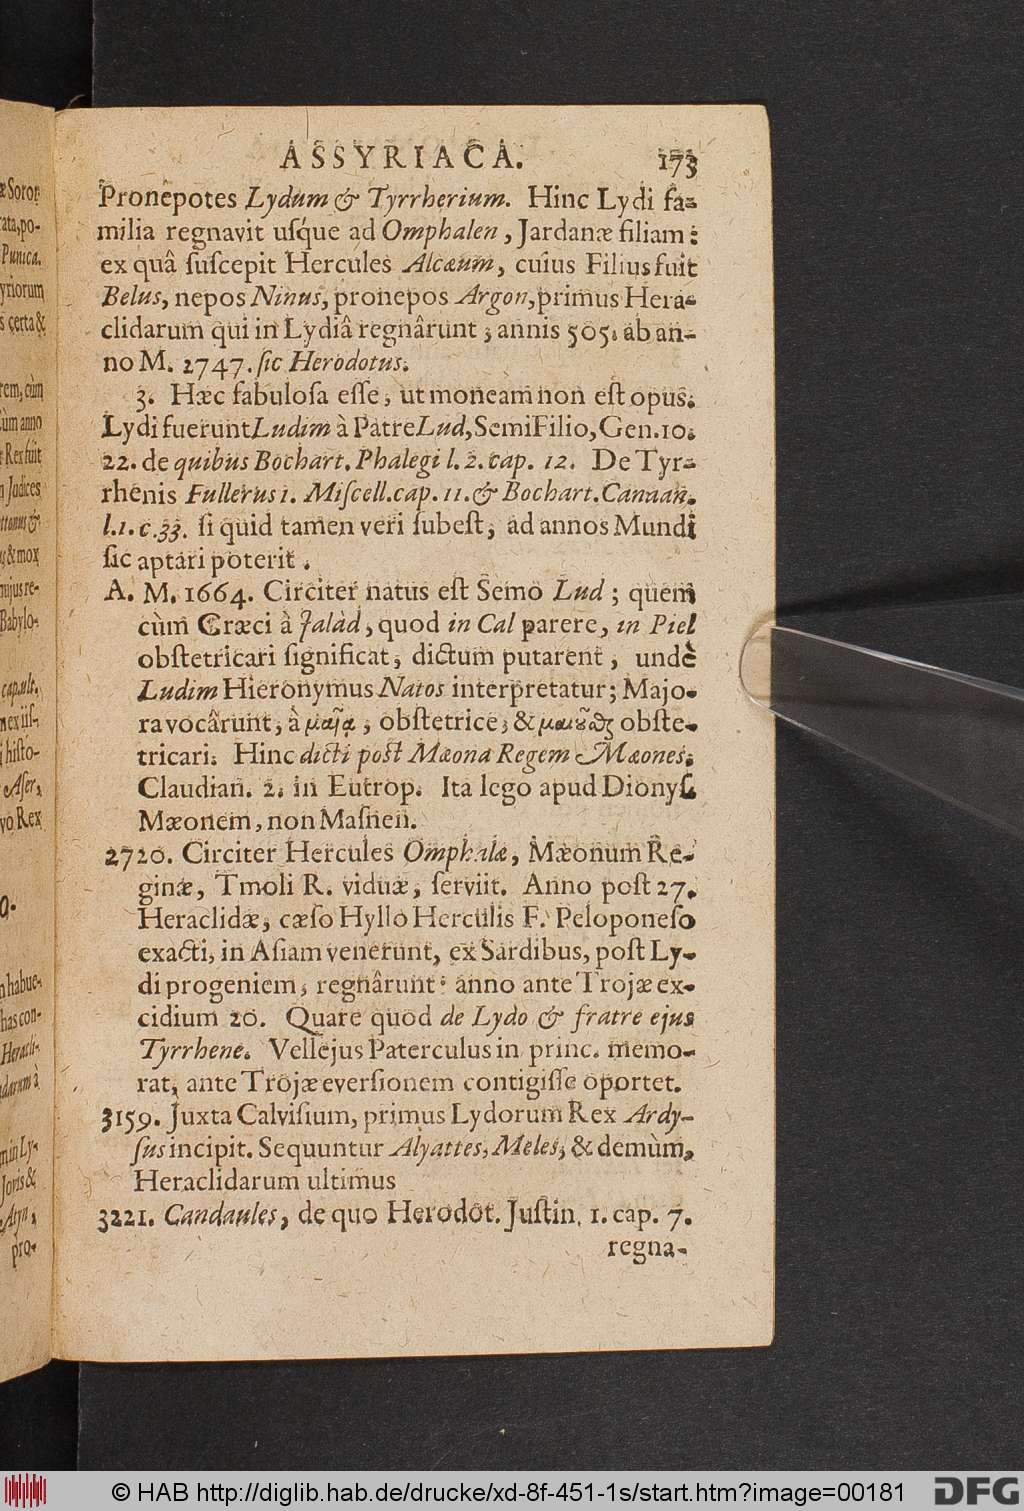 æ Soror
rata, po-
Punica.
yriorum
s certa &
rem, cùm
Cùm anno
r Rex fuit
n Judices
& mox
hujus re-
Babylo-
capult.
nex iis-
i histo-
Aser,
vo Rex
habue-
has con-
Heracli-
min Ly-
Joris &
Atyn,
pro-
ASSYRIACA. 173
Pronepotes Lydum & Tyrrherium. Hinc Lydi fa-
milia regnavit uſque ad Omphalen, Jardanæ filiam:
ex quâ ſuſcepit Hercules Alcæum, cuius Filius fuit
Belus, nepos Ninus, pronepos Argon, primus Hera-
clidarum qui in Lydiâ regnârunt; annis 505. ab an-
no M. 2747. ſic Herodotus.
3. Hæc fabuloſa eſſe, ut moneam non eſt opus.
Lydi fuerunt Ludim à Patre Lud, Semi Filio, Gen. 10.
22. de quibus Bochart. Phalegi l. 2. cap. 12. De Tyr-
rhenis Fullerus 1. Miſcell. cap. 11. & Bochart. Canaan.
l. 1. c. 33. ſi quid tamen veri ſubeſt, ad annos Mundi
ſic aptari poterit.
A. M. 1664. Circiter natus eſt Semo Lud; quem
cùm Græci à Jalàd, quod in Cal parere, in Piel
obſtetricari ſignificat, dictum putarent, undè
Ludim Hieronymus Natos interpretatur; Majo-
ra vocârunt, à μαῖα, obſtetrice; & μαιοῦσθ obſte-
tricari. Hinc dicti poſt Mæona Regem Mæones.
Claudian. 2. in Eutrop. Ita lego apud Dionyſ.
Mæonem, non Maſnen.
2720. Circiter Hercules Omphalæ, Mæonum Re-
ginæ, Tmoli R. viduæ, ſerviit. Anno poſt 27.
Heraclidæ, cæſo Hyllo Herculis F. Peloponeſo
exacti, in Aſiam venerunt, ex Sardibus, poſt Ly-
di progeniem, regnârunt: anno ante Trojæ ex-
cidium 20. Quare quod de Lydo & fratre ejus
Tyrrhene. Vellejus Paterculus in princ. memo-
rat, ante Trojæ everſionem contigiſſe oportet.
3159. Juxta Calviſium, primus Lydorum Rex Ardy-
ſus incipit. Sequuntur Alyattes, Meles, & demùm,
Heraclidarum ultimus
3221. Candaules, de quo Herodot. Juſtin. 1. cap. 7.
regna-
© HAB http://diglib.hab.de/drucke/xd-8f-451-1s/start.htm?image=00181 DFG